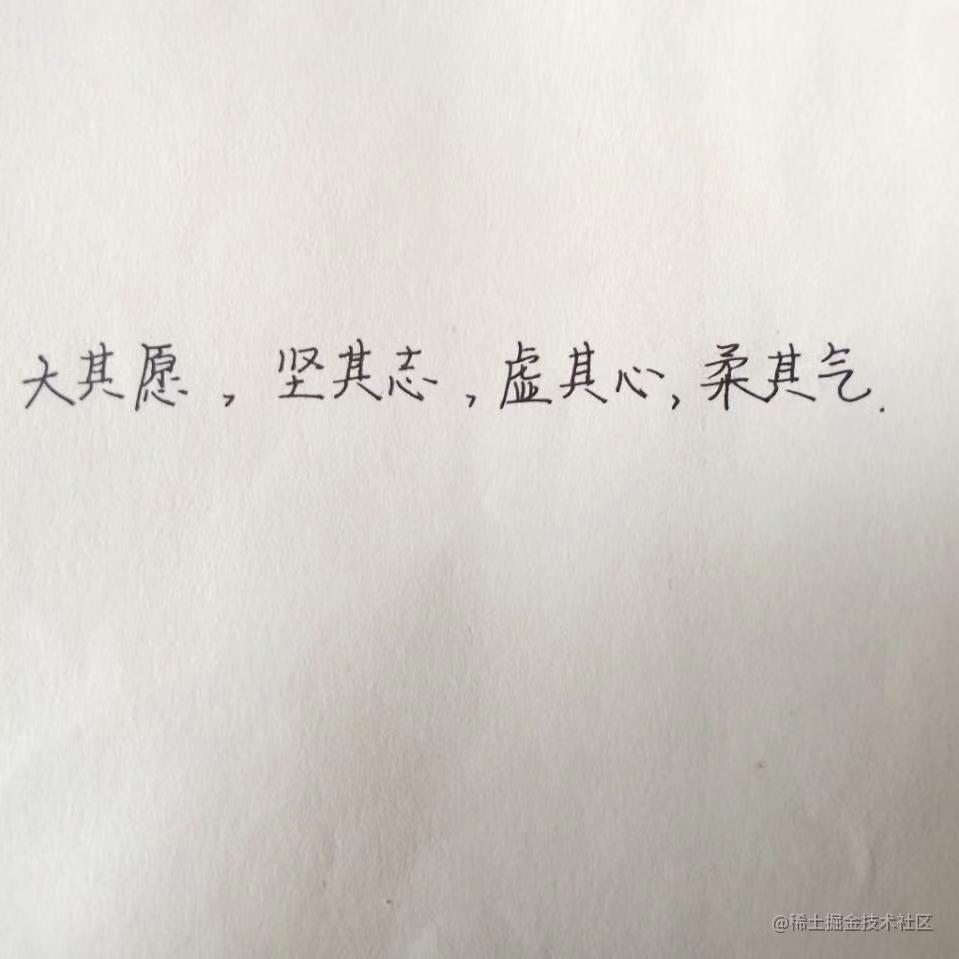 大其愿，坚其志，虚其心，柔其气.
@稀土掘金技术社区